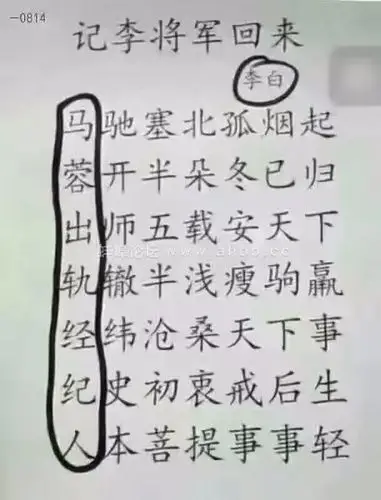 -0814
记李将军回来
李白
马驰塞北孤烟起
蓉开半朵冬已归
出师五载安天下
轨辙半浅瘦驹赢
经纬沧桑天下事
纪史初衷戒后生
人本菩提事事轻